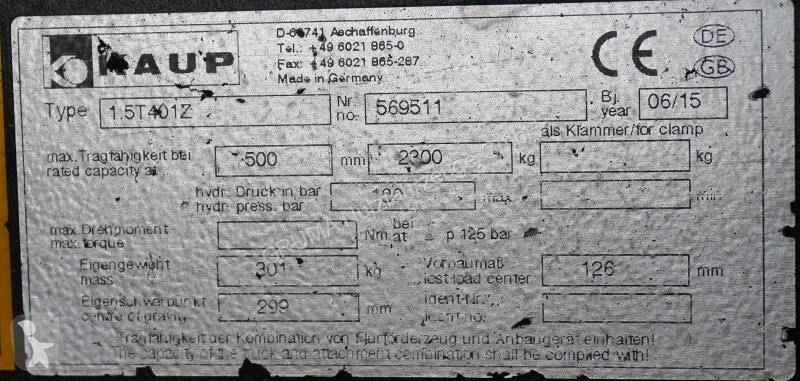 KAUP
D-63741 Aschaffenburg
Tel.: +49 6021 865-0
Fax: +49 6021 865-287
Made in Germany
CE
DE
GB
Type 1.5T401Z
Nr. no. 569511
Bj. year 06/15
als Klammer/for clamp
max. Tragfähigkeit bei
rated capacity at 500 mm 2300 kg kg
hydr. Druck in bar
hydr. press. bar max. min.
max. Drehmoment
max. torque Nm bei at p 125 bar
Eigengewicht
mass 301 kg
Vorbaumaß
lost load center 126 mm
Eigenschwerpunkt
centre of gravity 299 mm
Ident-Nr.
ident no.
Tragfähigkeit der Kombination von Flurförderzeug und Anbaugerät einhalten!
The capacity of the truck and attachment combination shall be complied with!